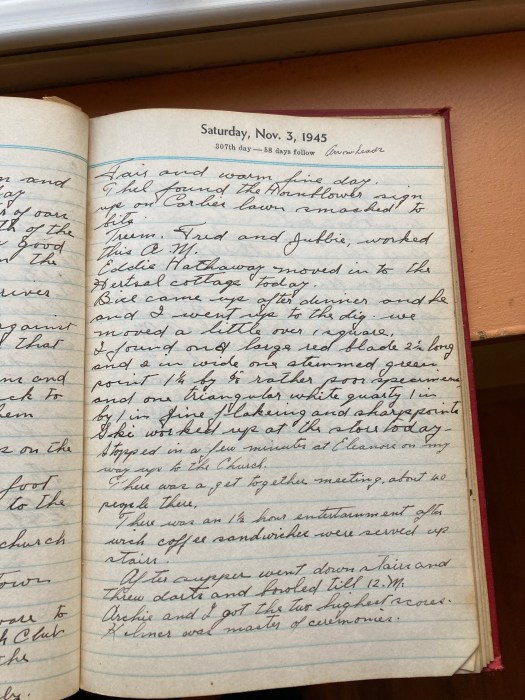 n and
ay
r of oars
th of the
good
n the
river
against
that
m and
ck to
hem
s on the
foot
to the
church
Town
to
k Club
the
by.
Saturday, Nov. 3, 1945
307th day — 58 days follow Arrow heads
Fair and warm fine day.
Thel found the Hornblower sign
up on Carlies lawn smashed to
bits.
Treem. Fred and Jubbie, worked
this A.M.
Eddie Hathaway moved in to the
cottage today.
Bill came up after dinner and he
and I went up to the dig, we
moved a little over square.
I found one large red blade 2¼ long
and 2 in wide one stemmed green
point 1½ by ⅝ rather poor specimens
and one triangular white quartz 1 in
by 1 in fine flakering and sharp points
Ski worked up at the store today-
Stopped in a few minutes at Eleanors on my
way up to the Church.
There was a get together meeting, about 40
people there.
There was an 1½ hour entertainment after
wich coffee sandwiches were served up
stairs.
After supper went down stairs and
threw darts and bowled till 12.M.
Archie and I got the two highest scores.
Kelmer was master of ceremonies.